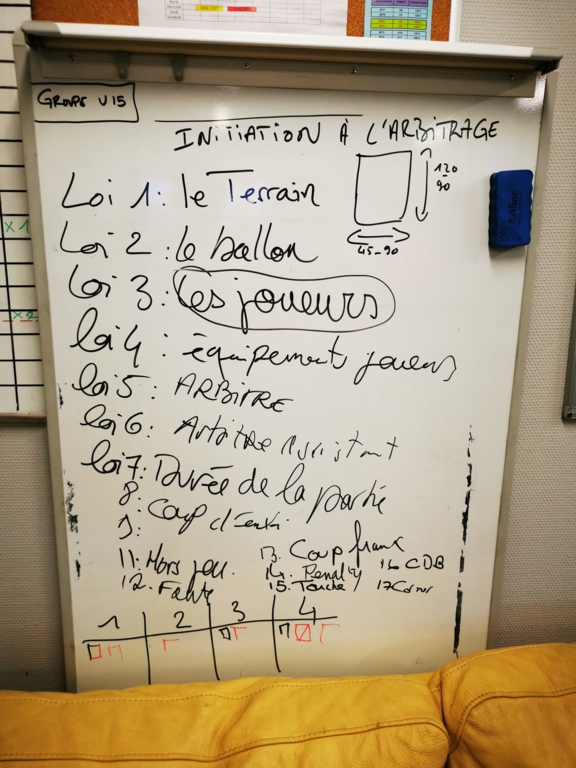 GROUPE U15
INITIATION À L'ARBITRAGE
120
90
45-90
Loi 1: le Terrain
Loi 2: le ballon
Loi 3: les joueurs
loi 4: équipements joueurs
loi 5: ARBITRE
loi 6: Arbitre Assistant
loi 7: Durée de la partie
8: Coup d'envoi
9:
11: Hors jeu.
12. Faute
13. Coup franc
14. Penalty
15. Touche
16 CDB
17 Corner
1 2 3 4